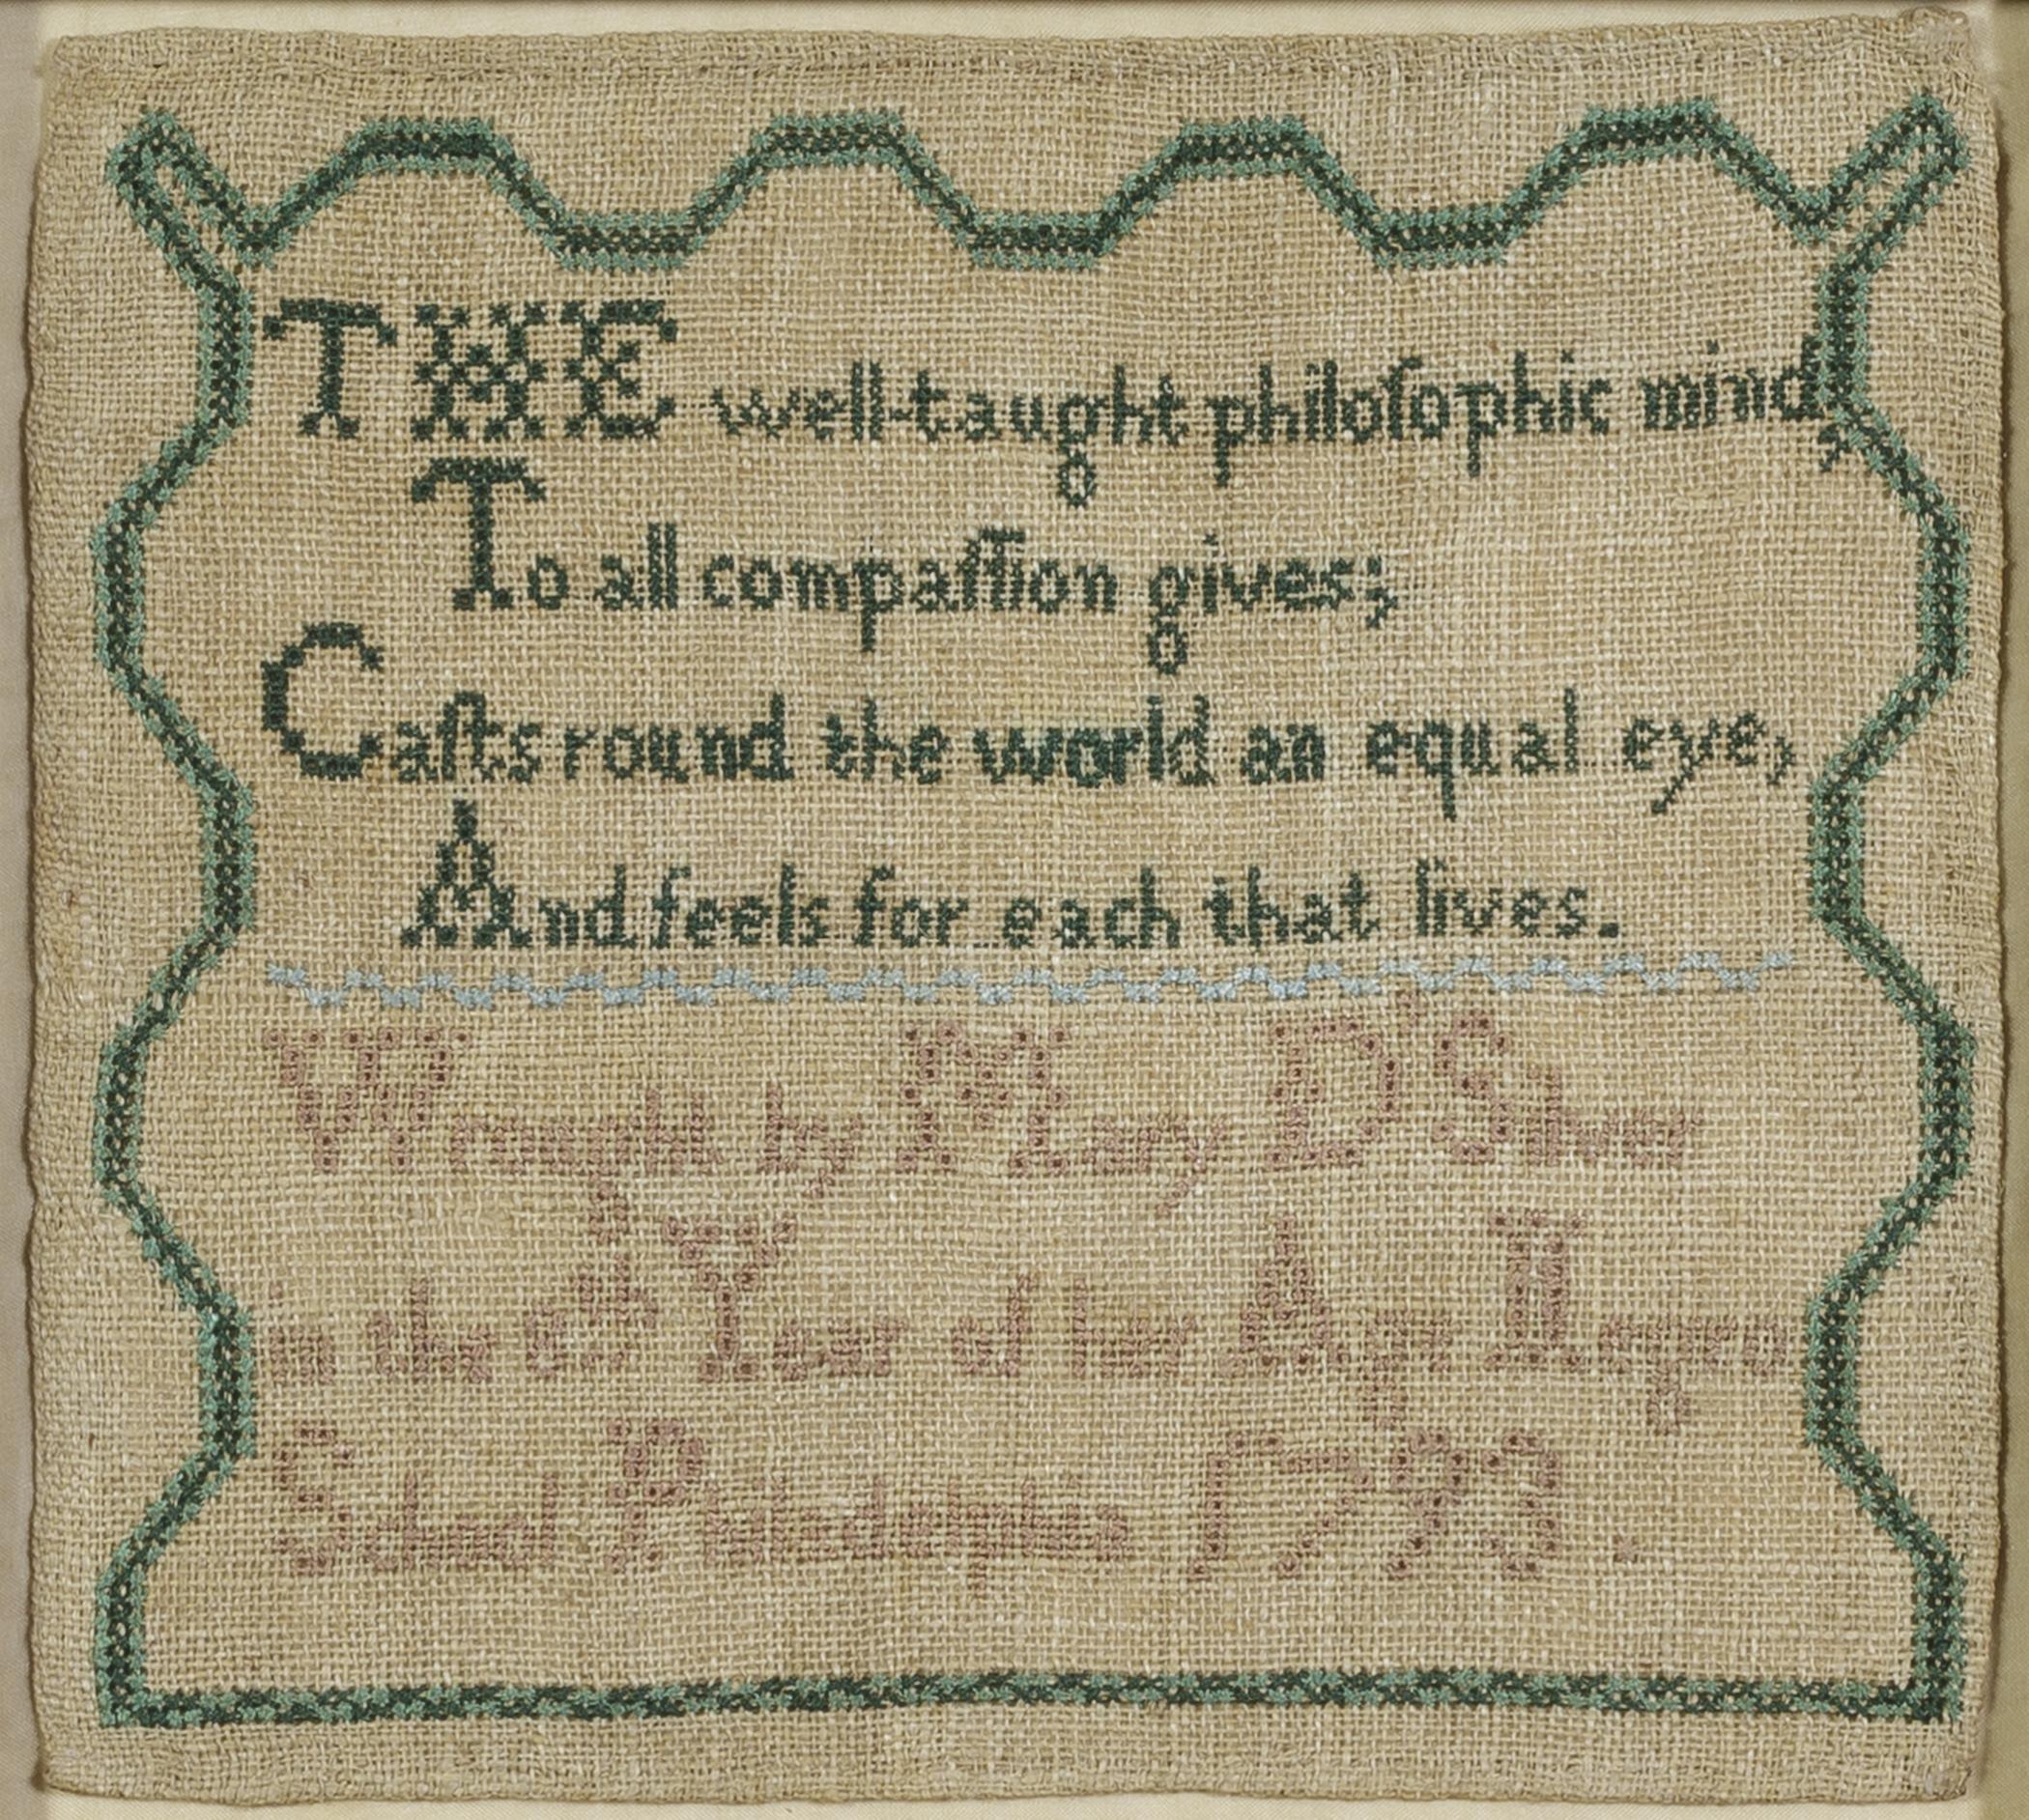 THE well-taught philoſophic mind,
To all compaſſion gives;
Caſts round the world an equal eye,
And feels for each that lives.
Wrought by Mary D'Silver
in the 8th Year of her Age Negro
School Philadelphia 1793.